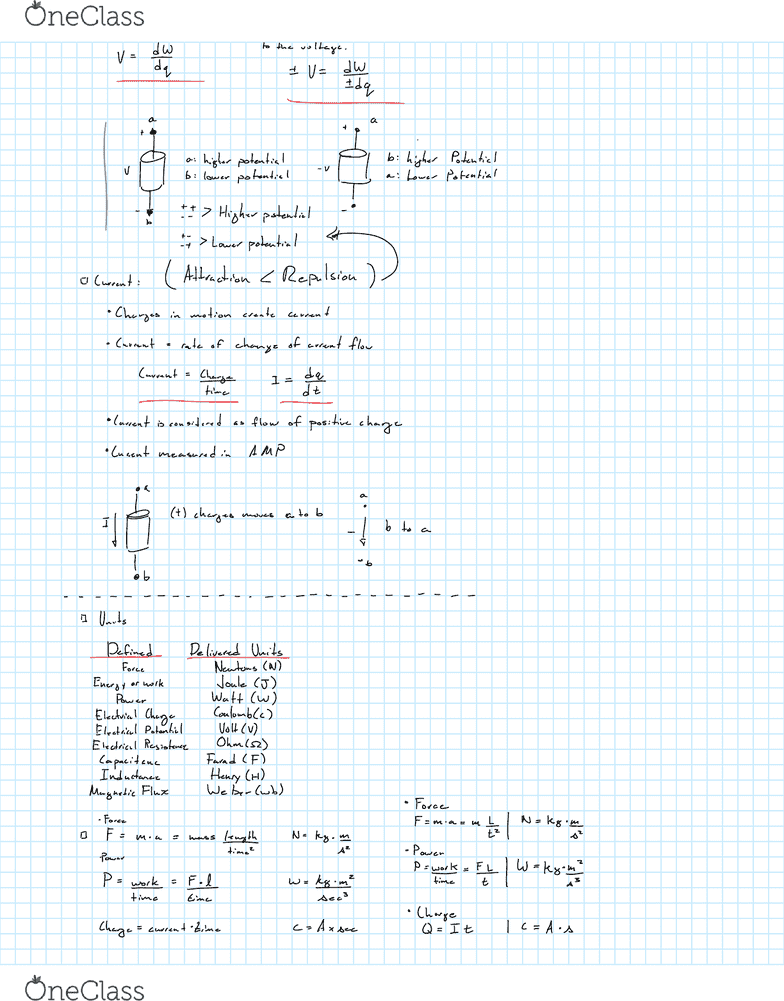 OneClass
to the voltage.
V = dW/dq
± V = dW/±dq
a
+
V
-
b
a: higher potential
b: lower potential
a
+
-V
-
b: higher Potential
a: Lower Potential
++ -- > Higher potential
+- -+ > Lower potential
Current: (Attraction < Repulsion)
• Charges in motion create current
• Current = rate of change of current flow
Current = Charge/time I = dq/dt
• Current is considered as flow of positive charge
• Current measured in AMP
a
I
b
(+) charges moves a to b
a
-
b
b to a
Units
Defined Delivered Units
Force Newtons (N)
Energy or work Joule (J)
Power Watt (W)
Electrical Charge Coulomb (c)
Electrical Potential Volt (V)
Electrical Resistence Ohm (Ω)
Capacitence Farad (F)
Inductance Henry (H)
Magnetic Flux Weber (wb)
• Force
F = m·a = mass length/time² N = kg · m/s²
Power
P = work/time = F·l/time W = kg·m²/sec³
Charge = current · time c = A × sec
• Force
F = m·a = m L/t² | N = kg · m/s²
• Power
P = work/time = FL/t | W = kg·m²/s³
• Charge
Q = I t | c = A·s
OneClass